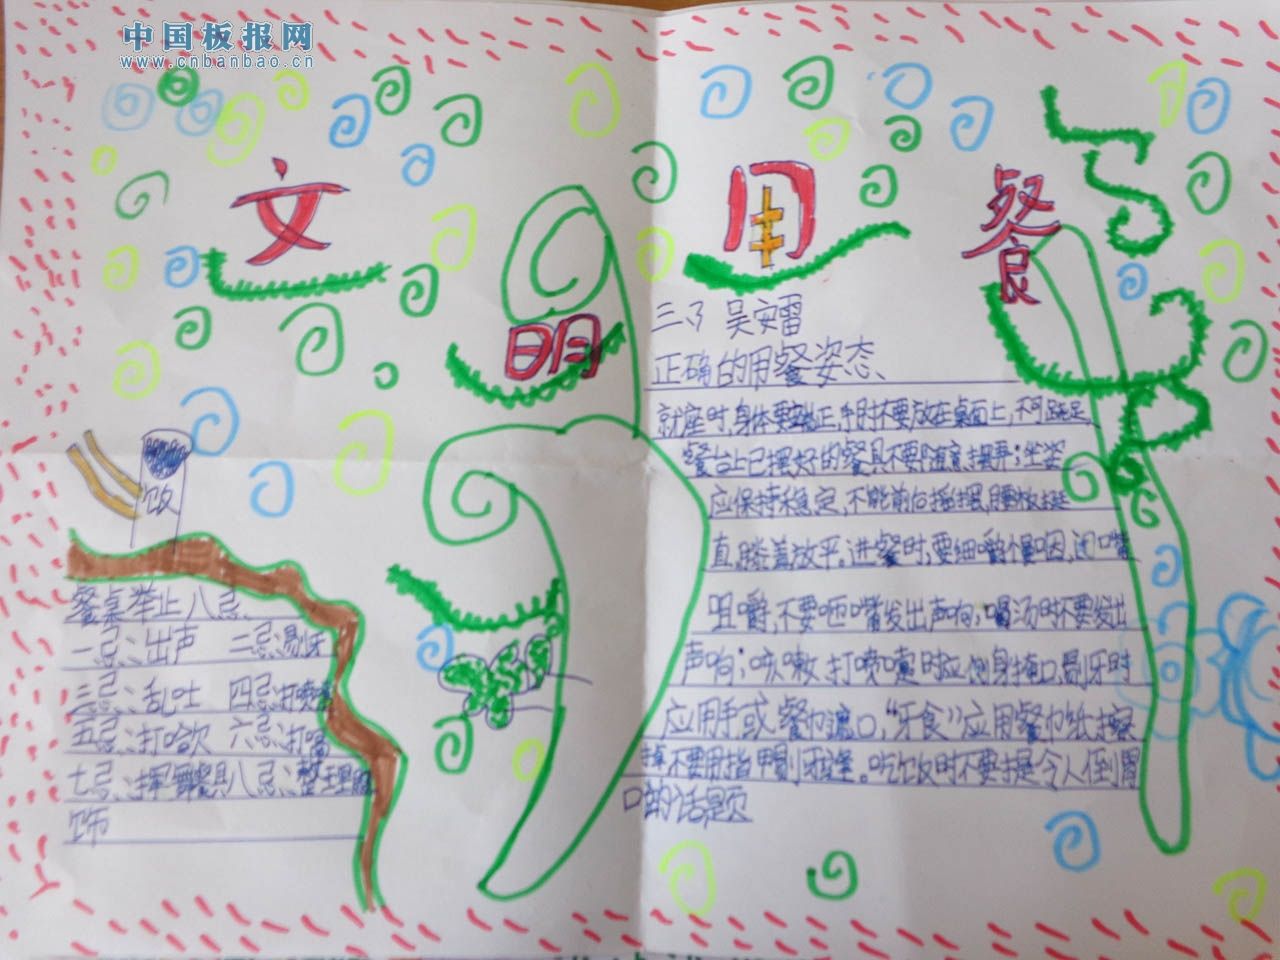 中国板报网
www.cnbanbao.cn
文明用餐
饭
餐桌举止八忌
一忌:出声 二忌:剔牙
三忌:乱吐 四忌:打喷嚏
五忌:打哈欠 六忌:打嗝
七忌:挥舞餐具八忌:整理服
饰
三.3 吴安雷
正确的用餐姿态
就座时,身体要端正,手肘不要放在桌面上,不可跷足
餐台上已摆好的餐具不要随意摆弄;坐姿
应保持稳定,不能前后摇摆,腰板挺
直,膝盖放平。进餐时,要细嚼慢咽,闭嘴
咀嚼,不要咂嘴发出声响;喝汤时不要发出
声响;咳嗽、打喷嚏时应侧身掩口,剔牙时
应用手或餐巾遮口,“牙食”应用餐巾纸擦
掉,不要用指甲剔牙缝。吃饭时不要提令人倒胃
口的话题